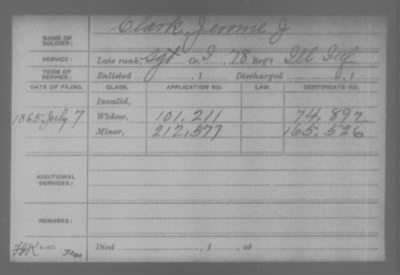 NAME OF SOLDIER: Clark, Jerome J
SERVICE: Late rank, Sgt Co. I, 78 Reg't Ill Inf
TERM OF SERVICE: Enlisted , 1 Discharged , 1
DATE OF FILING. CLASS. APPLICATION NO. LAW. CERTIFICATE NO.
Invalid,
1865, July 7 Widow, 101,211 74,892
Minor, 212,577 165,526
ADDITIONAL SERVICES:
REMARKS:
Died , 1 , at